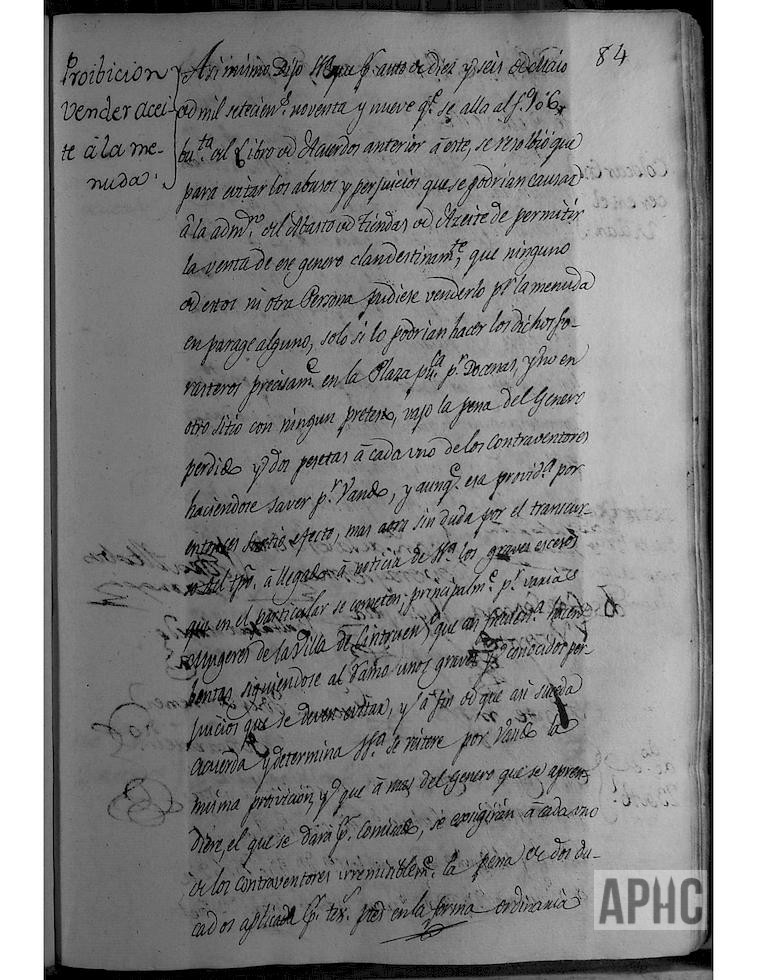 84
Proibicion
vender acei-
te â la me-
nuda.
Asi mismo Dijo SSª que pʳ auto de diez y seis de Maio
de mil setecienˢ. noventa y nueve qᵉ. se alla al fº 106
buᵗᵃ del Libro de Acuerdos anterior â este, se resolbió que
para evitar los abusos y perjuicios que se podrian causar
â la admⁿ. del Abasto de tiendas de Azeite de permitir
la venta de ese genero clandestinamᵗᵉ, que ninguno
de estos ni otra Persona pudiese venderlo pʳ la menuda
en parage alguno, solo si lo podrian hacer los dichos fo-
rasteros precisamᵉ. en la Plaza puᶜᵃ. pʳ Docenas, y no en
otro sitio con ningun pretesto, vajo la pena del Genero
perdido y dos pesetas â cada uno de los contraventores
haciendose saver pʳ Vando, y aunqᵉ. esa providª por
entonces surtio efecto, mas aora sin duda por el transcur-
so del tpº. â llegado â noticia de SSª los graves excesos
que en el particular se cometen, principalmᵉ. pʳ varias
Mugeros de la Villa de Cintruen
bentas, siguiendose al Ramo unos graves conocidos per-
juicios que se deven evitar, y â fin de que asi suceda
acuerda y determina SSª se reitere por Vando la
misma provicion, y que â mas del genero que se apren-
diere, el que se dará pʳ. comiso, se exigirán â cada uno
de los contraventores irremisiblemᵉ. la pena de dos du-
cados aplicada pʳ. terˢ. ptes en la forma ordinaria
APHC